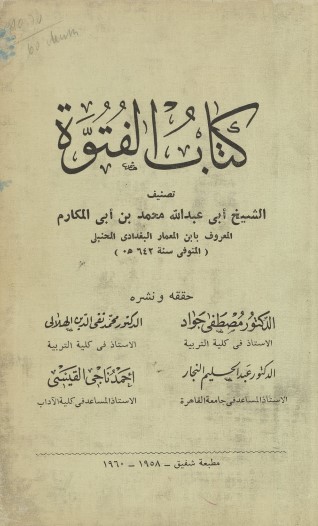 كتاب الفتوة
تصنيف
الشيخ أبى عبدالله محمد بن أبى المكارم
المعروف بابن المعمار البغدادى الحنبلى
( المتوفى سنة ٦٤٢ هـ )
حققه ونشره
الدكتور مصطفى جواد
الاستاذ فى كلية التربية
الدكتور محمد تقي الدين الهلالي
الاستاذ فى كلية التربية
الدكتور عبد الحليم النجار
الاستاذ المساعد فى جامعة القاهرة
احمد ناجي القيسي
الاستاذ المساعد فى كلية الآداب
مطبعة شفيق - ١٩٥٨ - ١٩٦٠